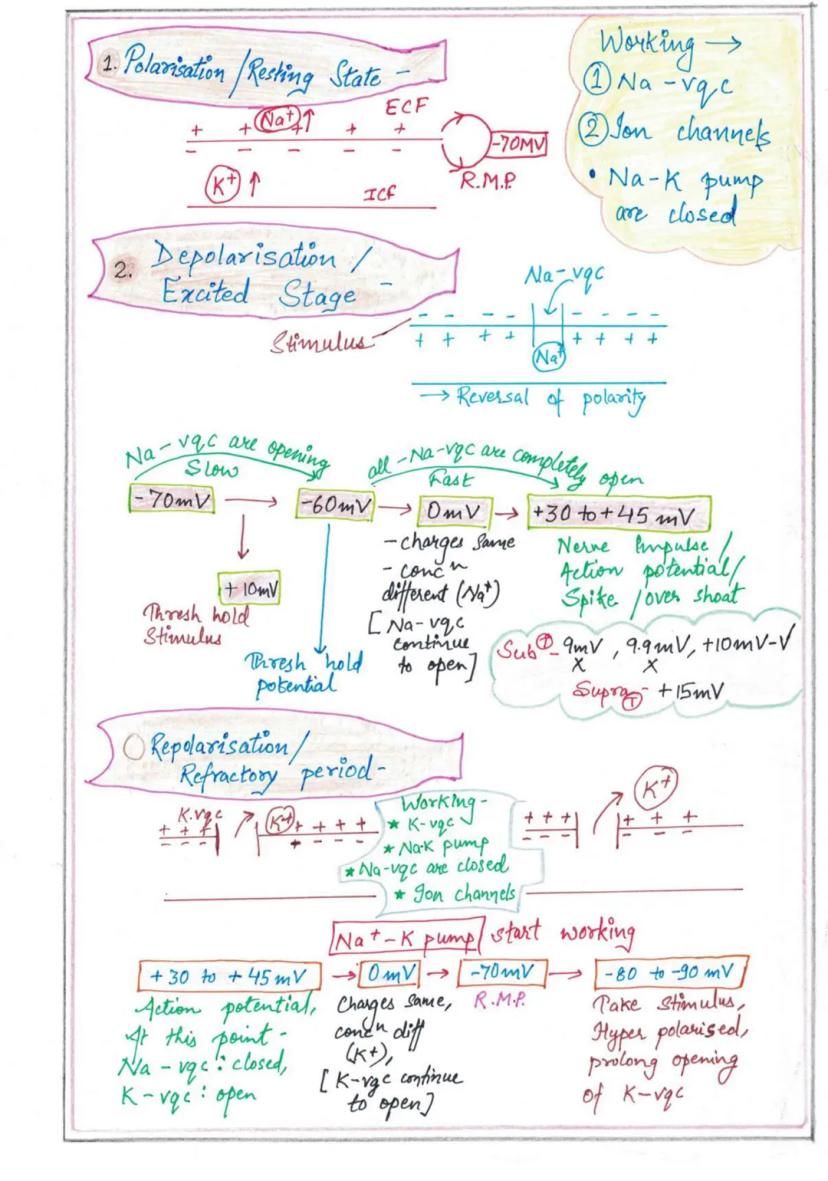 1. Polarisation/Resting State -
Na+ ↑ ECF
+ + + + +
- - - - -
-70MV
R.M.P.
K+ ↑ ICF
Working →
① Na-vgc
② Ion channels
• Na-K pump
are closed
2. Depolarisation /
Excited Stage -
Na-vgc
Stimulus
- - - - - - - -
+ + + + + + + +
Na+
→ Reversal of polarity
Na-vgc are opening
Slow
all-Na-vgc are completely open
Fast
-70mV → -60mV → 0mV → +30 to +45 mV
+10mV
Thresh hold
Stimulus
Thresh hold
potential
- charges same
- concn
different (Na+)
[Na-vgc
continue
to open]
Nerve Impulse/
Action potential/
Spike /over shoat
Sub Ⓣ - 9mV , 9.9mV, +10mV-√
X X
Supra Ⓣ - +15mV
Repolarisation/
Refractory period-
K.vgc
+ + +
- - -
K+ + + + +
+ - - -
Working-
★ K-vgc
★ Na-K pump
★ Na-vgc are closed
★ Ion channels
+ + +
- - -
K+
+ + +
- - -
Na+-K pump start working
+30 to +45mV → 0mV → -70mV → -80 to -90 mV
Action potential,
At this point-
Na-vgc : closed,
K-vgc : open
Charges same,
concn diff
(K+),
[K-vgc continue
to open]
R.M.P.
Take Stimulus,
Hyper polarised,
prolong opening
of K-vgc